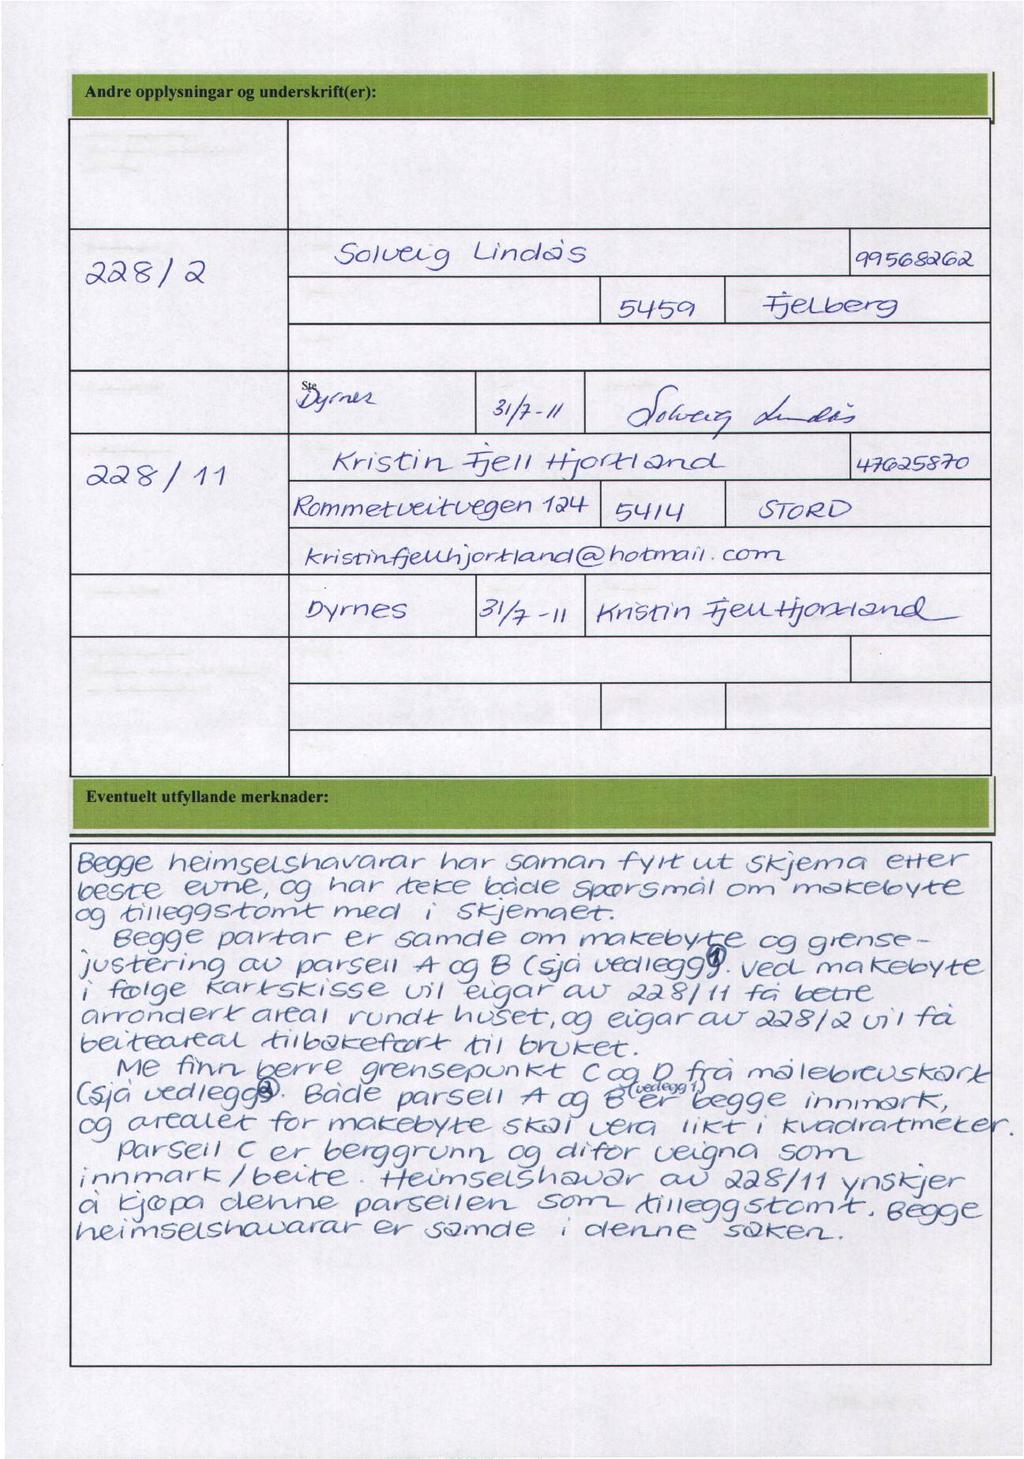 Andre opplysningar og underskrift(er):
228/2
Solveig Lindås
99568262
5459
Fjelberg
Ste
Dyrnes
31/7-11
Solveig Lindås
228/11
Kristin Fjell Hjortland
47625870
Rommetveitvegen 124
5414
STORD
kristinfjellhjortland@hotmail.com
Dyrnes
31/7-11
Kristin Fjell Hjortland
Eventuelt utfyllande merknader:
Begge heimselshavarar har saman fylt ut skjema etter
beste evne, og har teke både spørsmål om makebyte
og tilleggstomt med i skjemaet.
Begge partar er samde om makebyte og grense-
justering av parsell A og B (sjå vedlegg 1). Ved makebyte
i følge kartskisse vil eigar av 228/11 få betre
arrondert areal rundt huset, og eigar av 228/2 vil få
beiteareal tilbakeført til bruket.
Me finn berre grensepunkt C og D frå målebrevskart
(sjå vedlegg 2). Både parsell A og B (vedlegg 1) er begge innmark,
og arealet for makebyte skal vera likt i kvadratmeter.
Parsell C er berggrunn og difor ueigna som
innmark/beite. Heimselshavar av 228/11 ynskjer
å kjøpa denne parsellen som tilleggstomt. Begge
heimselshavarar er samde i denne saken.